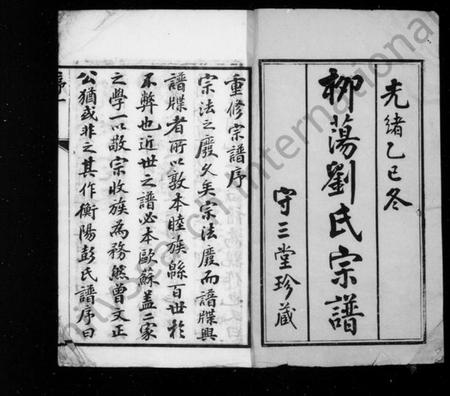 光緒乙巳冬
柳蕩劉氏宗譜
守三堂珍藏
重修宗譜序
宗法之廢久矣宗法廢而譜牒興
譜牒者所以敦本睦族緜百世於
不弊也近世之譜必本歐蘇盖二家
之學一以敬宗收族為務然曾文正
公猶或非之其作衡陽彭氏譜序曰
序一